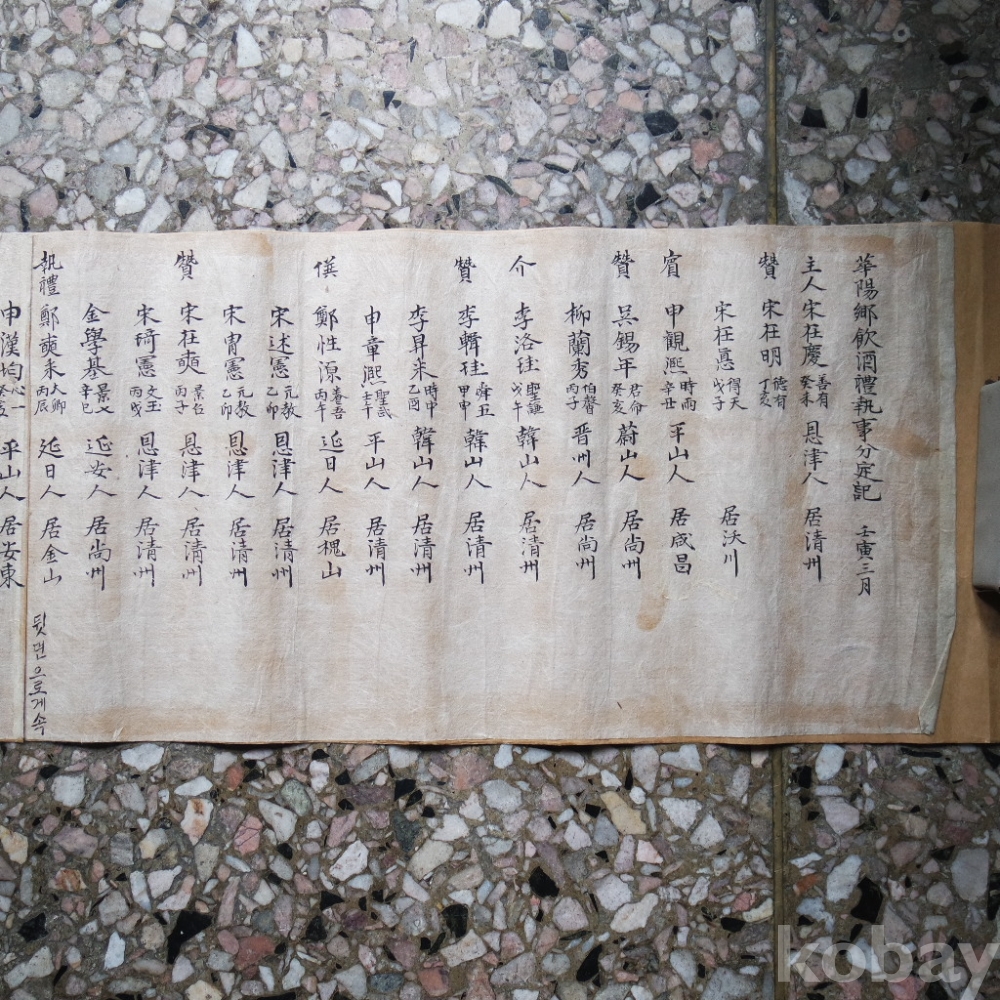 華陽鄉飮酒禮執事分定記 壬寅三月
主人 宋在慶 善有 癸未 恩津人 居清州
贊 宋在明 德有 丁亥
宋在悳 得天 戊子 居沃川
賓 申觀熙 時雨 辛丑 平山人 居咸昌
贊 吳錫年 君命 癸亥 蔚山人 居尙州
柳蘭秀 伯馨 丙子 晋州人 居尙州
介 李洛珪 聖謙 戊午 韓山人 居清州
贊 李輯珪 舜五 甲申 韓山人 居清州
李昇釆 時中 乙酉 韓山人 居清州
申章熙 聖武 壬午 平山人 居清州
僎 鄭性源 春吾 丙午 延日人 居槐山
宋述憲 元敎 乙卯 恩津人 居清州
宋胄憲 元敎 乙卯 恩津人 居清州
贊 宋在奭 景任 丙子 恩津人 居清州
宋琦憲 文玉 丙戌 恩津人 居清州
金學基 景文 辛巳 延安人 居尙州
執禮 鄭奭采 大卿 丙辰 延日人 居金山
뒷면으로게속
申漢均 心一 癸亥 平山人 居安東
kobay